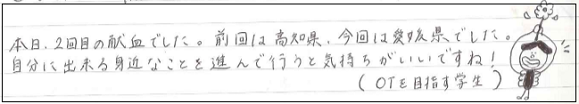 本日、2回目の献血でした。前回は高知県、今回は愛媛県でした。
自分に出来る身近なことを進んで行うと気持ちがいいですね！
（OTを目指す学生）